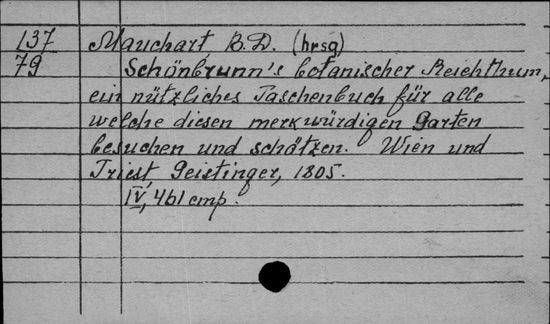 137 Mauchart, B.D. (hrsg)
79 Schönbrunn's botanischer Reichthum,
ein nützliches Taschenbuch für alle
welche diesen merkwürdigen Garten
besuchen und schätzen. Wien und
Triest Geistinger, 1805.
IV, 461 стр.